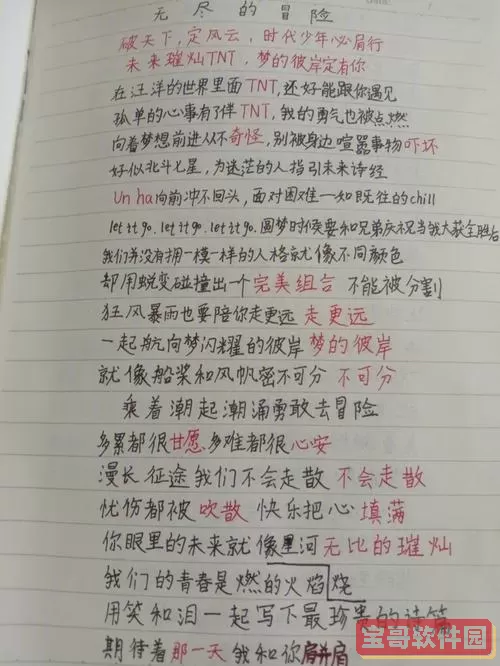 无尽的冒险
破天下,定风云,时代少年必肩行
未来璀灿TNT,梦的彼岸定有你
在汪洋的世界里面TNT,还好能跟你遇见
孤单的心事有了伴TNT,我的勇气也被点燃
向着梦想前进从不奇怪,别被身边喧嚣事物吓坏
好似北斗七星,为迷茫的人指引未来诗经
Un ha向前冲不回头,面对困难一如既往的chill
let it go. let it go. let it go. 圆梦时候要和兄弟庆祝当我大获全胜后
我们并没有拥一模一样的人格就像不同颜色
却用蜕变碰撞出一个完美组合 不能被分割
狂风暴雨也要陪你走更远 走更远
一起航向梦闪耀的彼岸 梦的彼岸
就像船桨和风帆密不可分 不可分
乘着潮起潮涌勇敢去冒险
多累都很甘愿 多难都很心安
漫长征途我们不会走散 不会走散
忧伤都被吹散 快乐把心填满
你眼里的未来就像星河 无比的璀灿
我们的青春是燃的火焰烧
用笑和泪一起写下最珍贵的诗篇
期待着那一天 我和你肩并肩
宝哥软件园